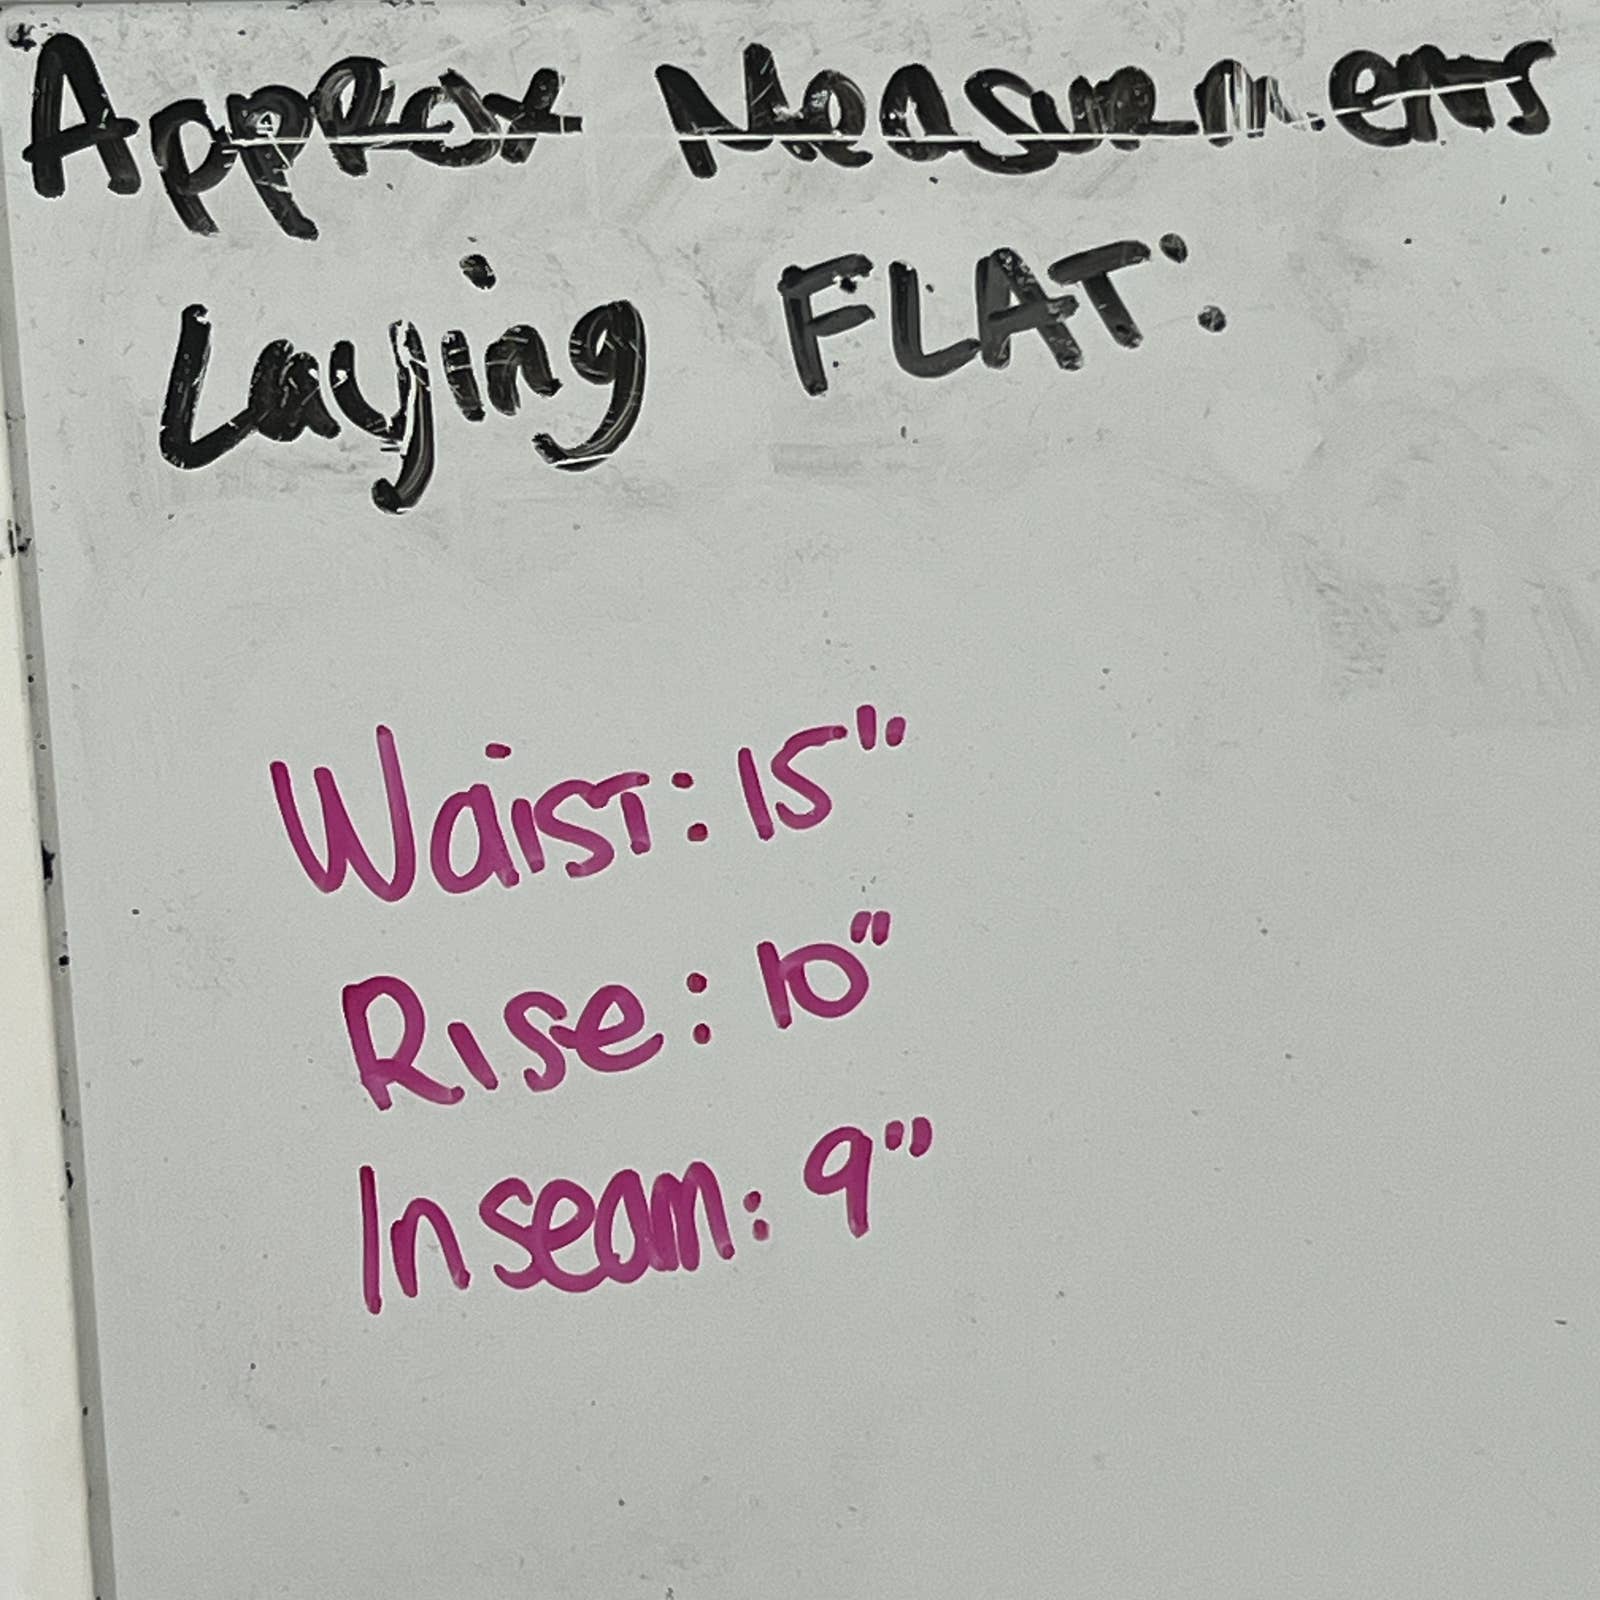 Approx Measurments
Laying FLAT:
Waist: 15"
Rise: 10"
Inseam: 9"